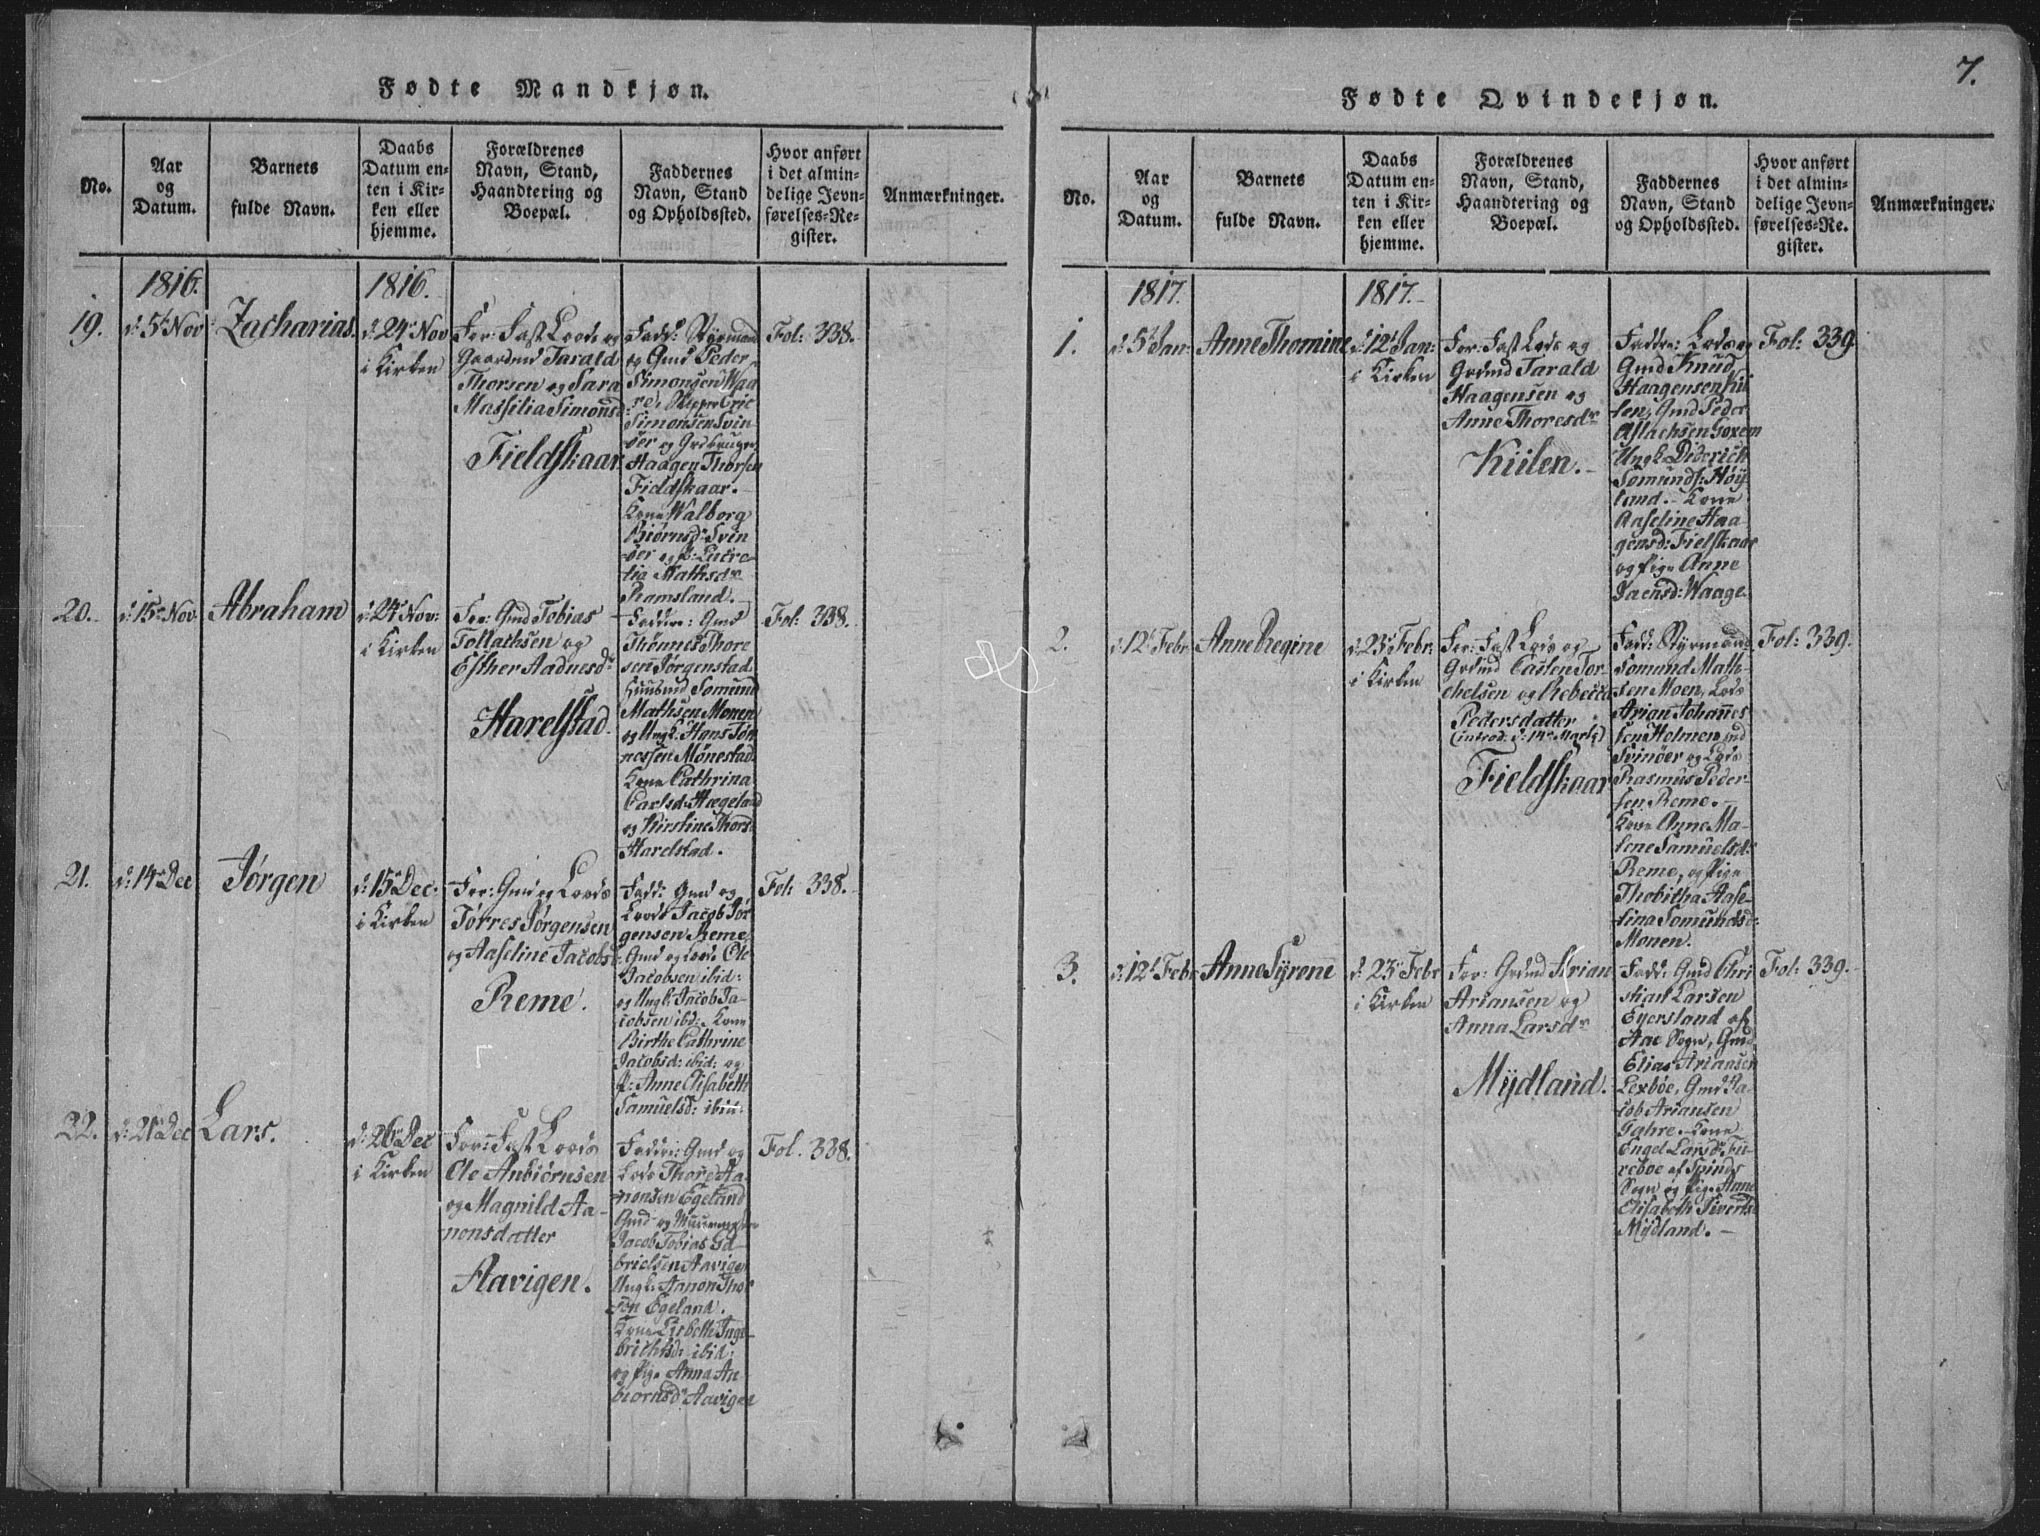 7.
Fødte Mandkjøn.
No.
Aar
og
Datum.
Barnets
fulde Navn.
Daabs
Datum en-
ten i Kir-
ken eller
hjemme.
Forældrenes
Navn, Stand,
Haandtering og
Boepæl.
Faddernes
Navn, Stand
og Opholdssted.
Hvor anført
i det almin-
delige Jevn-
førelses-Re-
gister.
Anmærkninger.
1816.
1816.
19.
d: 5t Nov
Zacharias.
d: 24r Nov
i Kirken
For: Fast Lods og
Gaardmd Tarald
Thorsen og Sara
Massilia Simonsd:
Fieldskaar
Fadd: Styrmand
og Gmd Peder
Simonsen Waa
re, Skipper Eric
Simonsen Svin-
öer og Grdbruger
Haagen Thorsen
Fieldskaar.
Kone Walborg
Biörnsd: Svin
öer og P: Lucre-
tia Mathsdr
Ramsland.
Fol: 338.
20.
d: 15r Nov:
Abraham
d: 24r Nov:
i Kirken
For: Gmd Tobias
Tollachsen og
Esther Aadnesdr
Harelstad.
Faddre: Gmd
Thönnes Thore
sen Jørgenstad
Huusmd Somund
Mathsen Monen
og Ungk: Hans Tön
nessen Mönestad.
Kone Cathrina
Carlsd: Hægeland
og Kirstine Thorsd
Harelstad.
Fol: 338.
21.
d: 14r Dec
Jørgen
d: 15r Dec:
i Kirken
For: Gmd og Lods
Törres Jørgensen
og Aaseline Jacobsd:
Reme.
Fadd: Gmd og
Lods Jacob Jör
gensen Reme,
Gmd og Lods Ole
Jacobsen ibid:
og Ungk: Jacob Ja-
cobsen ibd: Kone
Birthe Cathrine
Jacobsd: ibid: og
P: Anne Elisabeth
Samuelsd: ibid:
Fol: 338.
22.
d: 21r Dec
Lars.
d: 26r Dec
i Kirken
For: Fast Lods
Ole Anbiörnsen
og Magnild Aa-
nonsdatter
Aavigen.
Faddre: Gmd og
Lods Thore Aa-
nonsen Egeland
Gmd og Muurmester
Jacob Tobias Ga-
brielsen Aavigen
Ungk: Aanon Thor
sön Egeland.
Kone Lisbeth Inge-
brichtsd: ibid:
og Pige Anna An
biornsdr Aavigen
Fol. 338.
Fødte Qvindekjøn.
No.
Aar
og
Datum.
Barnets
fulde Navn.
Daabs
Datum en-
ten i Kir-
ken eller
hjemme.
Forældrenes
Navn, Stand,
Haandtering og
Boepæl.
Faddernes
Navn, Stand
og Opholdssted.
Hvor anført
i det almin-
delige Jevn-
førelses-Re-
gister.
Anmærkninger.
1817.
1817.
1.
d: 5t Jan:
Anne Thomine
d: 12t Jan:
i Kirken
For: Fast Lods og
Grdmd Tarald
Haagensen og
Anne Thoresdr
Kiilen.
Faddre: Lods og
Gmd Knud
Haagensen Kii
len, Gmd Peder
Aslachsen
Ungk: Diderich
Somunds: Höy-
land. Kone
Aaseline Haa
gensd: Fielskaar
og Pige Anne
Waage.
Fol: 339
2.
d: 12t Febr
Anne Regine
d: 23r Febr:
i Kirken
For: Fast Lods og
Grdmd Casten Tor
chelsen og Rebecca
Pedersdatter
(introd: d: 14r Marty)
Fieldskaar
Fadd: Styrmand
Somund Math-
sen Moen, Lods
Arian Johannes
sen Holmen ved
Svinöer og Lods
Rasmus Peder-
sen Reme.
Kone Anne Ma-
lene Samuelsd:
Reme, og Pige
Thobitha Aase-
lina Somundsd:
Monen.
Fol: 339.
3.
d: 12t Febr
Anne Syrene
d: 23r Febr
i Kirken
For: Grdmd Arian
Ariansen og
Anna Larsdr
Mydland.
Fadd: Gmd Chri
stian Larsen
Eyersland af
Aae Sogn, Gmd
Elias Ariansen
Lexböe, Gmd Ja-
cob Ariansen
Jahre. Kone
Engel Larsdr Fu-
reboe af Spinds
Sogn og Pige Anne
Elisabeth Sivertsd
Mydland.
Fol: 339.